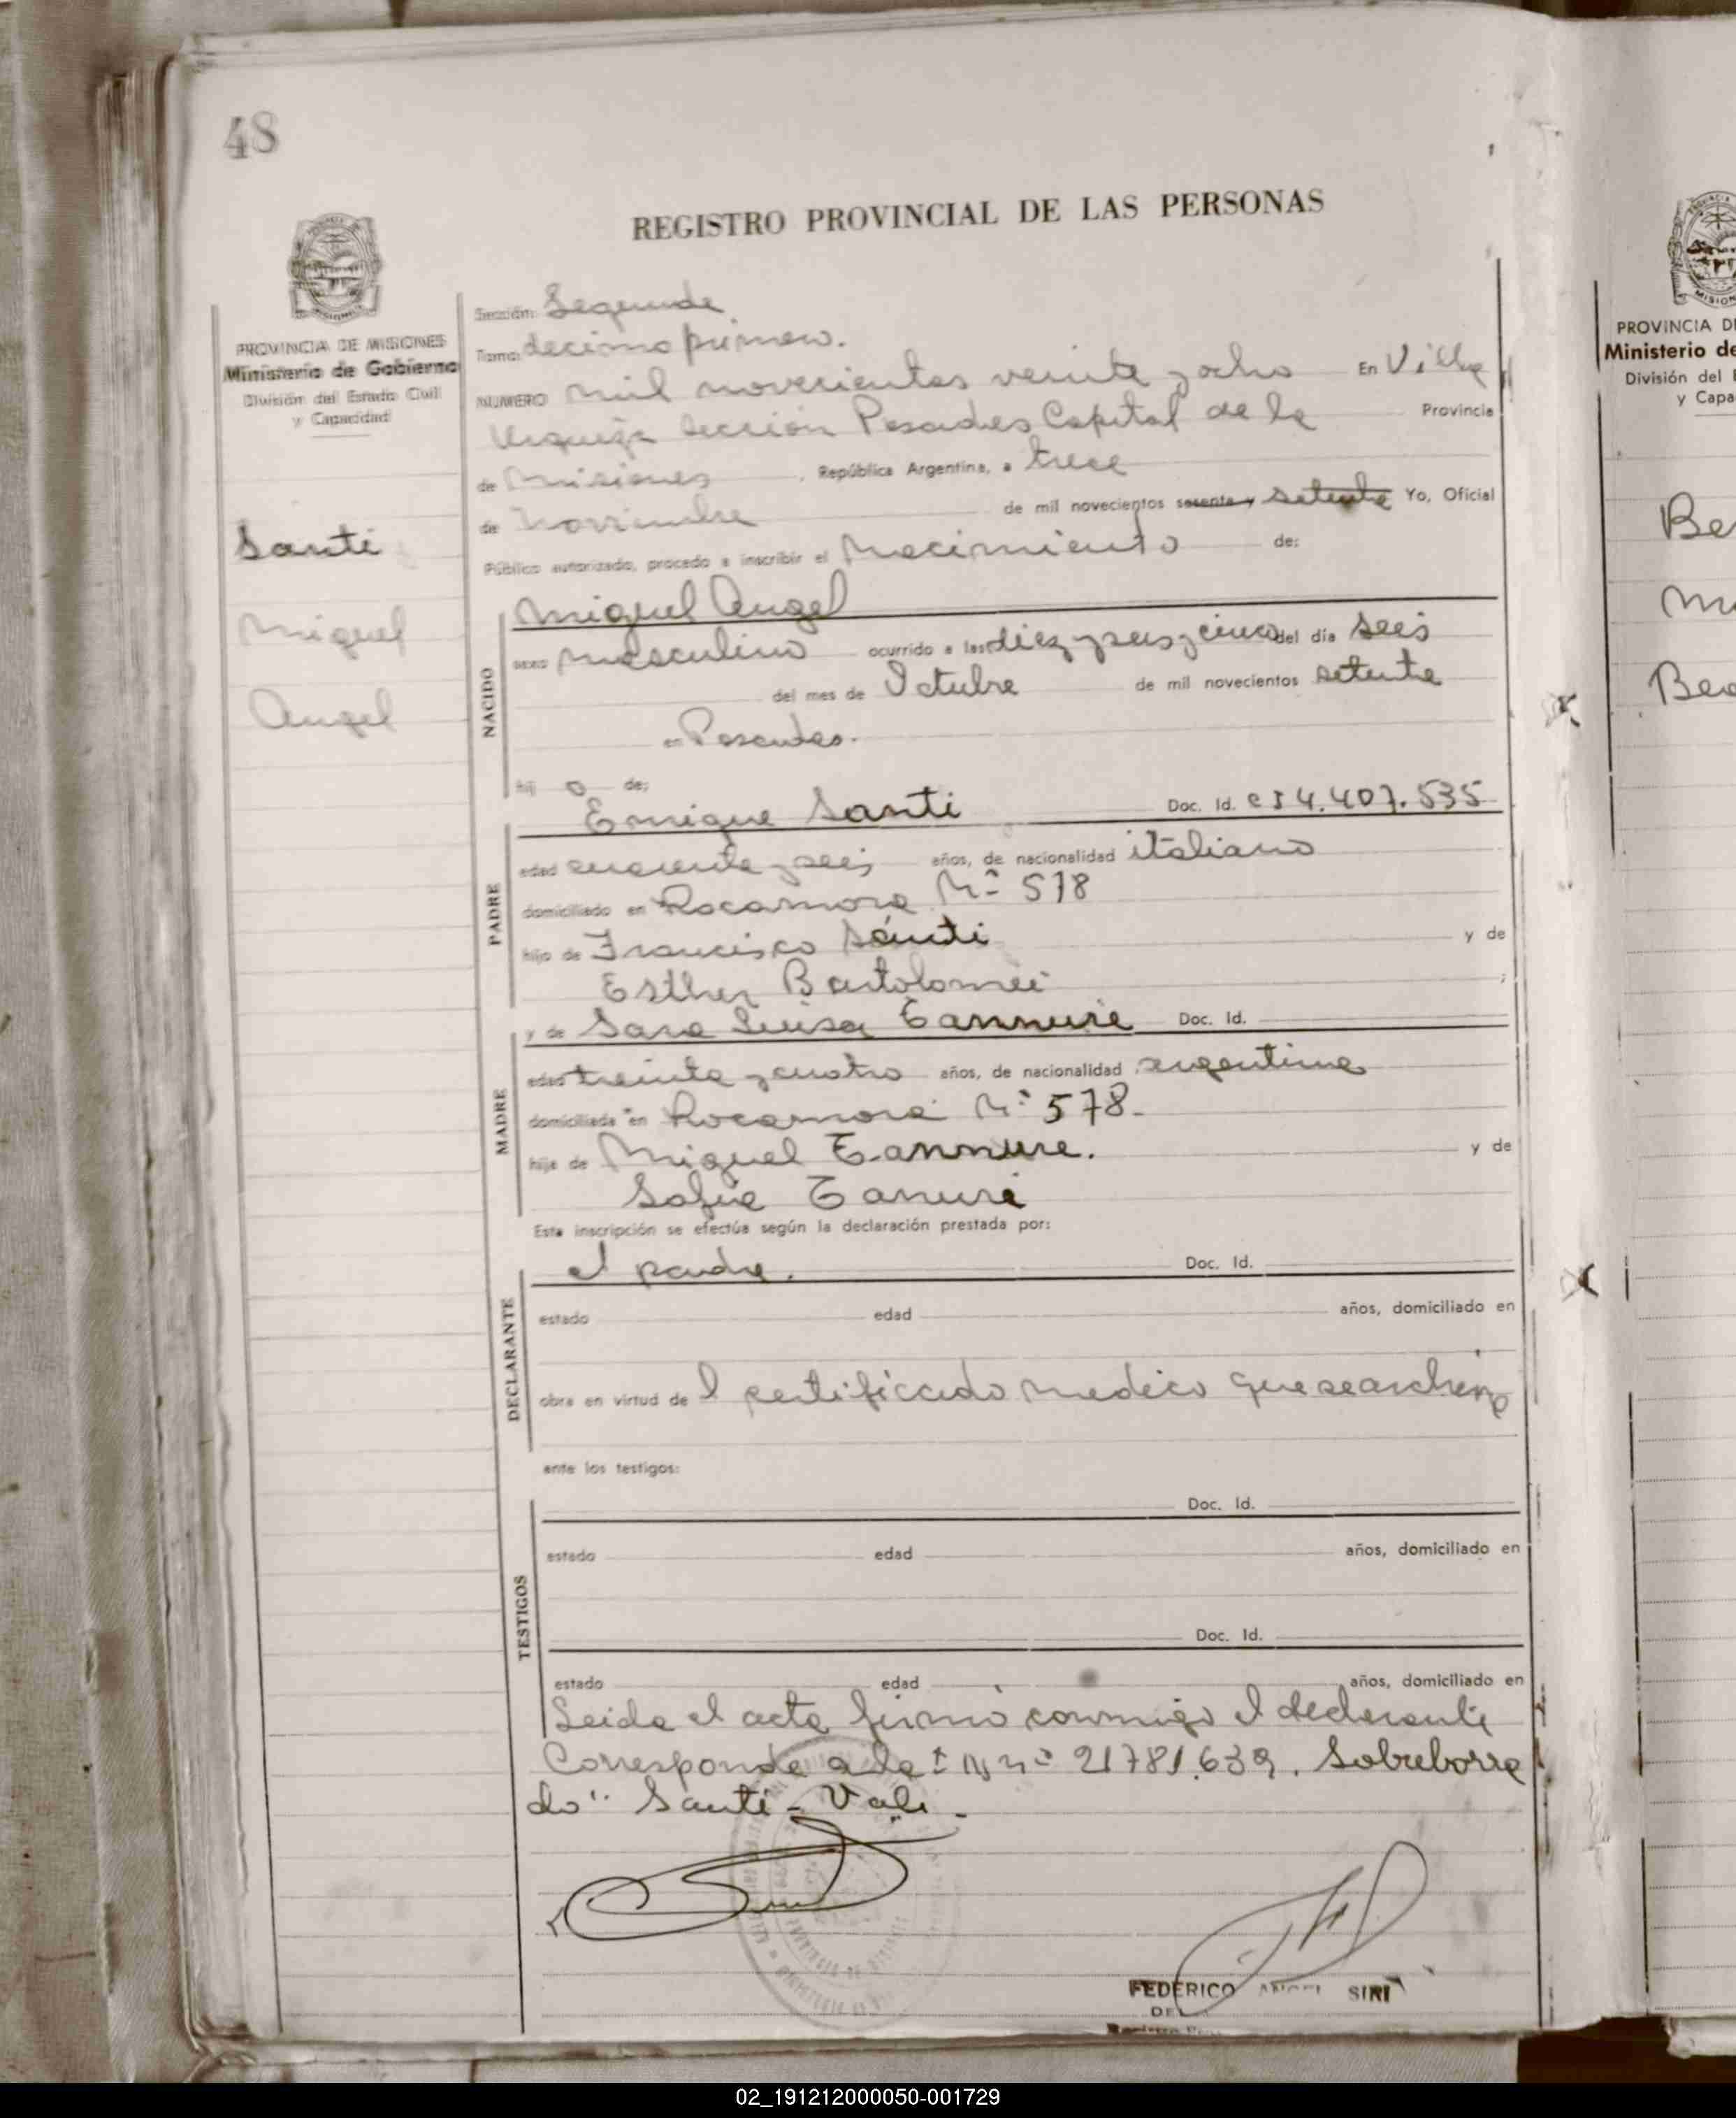 48
REGISTRO PROVINCIAL DE LAS PERSONAS
PROVINCIA DE MISIONES
Ministerio de Gobierno
División del Estado Civil
y Capacidad
Santi
Miguel
Angel
Sección: Segunda
Tomo: decimo primero.
NUMERO mil novecientos veinte y ocho En Villa
Urquiza sección Posadas Capital de la Provincia
de Misiones, República Argentina, a trece
de noviembre de mil novecientos sesenta y setenta Yo, Oficial
Público autorizado, procedo a inscribir el Nacimiento de:
NACIDO
Miguel Angel
sexo masculino ocurrido a las diez y seis y cinco del día seis
del mes de Octubre de mil novecientos setenta
en Posadas.
hij o de:
PADRE
Enrique Santi Doc. Id. CI 4.407.535
edad cuarenta y seis años, de nacionalidad italiano
domiciliado en Rocamora Nº 578
hijo de Francisco Santi y de
Esther Bartolomei ;
MADRE
y de Sara Luisa Tannure Doc. Id.
edad treinta y cuatro años, de nacionalidad argentina
domiciliada en Rocamora Nº 578-
hija de Miguel Tannure. y de
Sofia Tanure
Esta inscripción se efectúa según la declaración prestada por:
DECLARANTE
el padre. Doc. Id.
estado edad años, domiciliado en
obra en virtud de l certificado medico que se archiva
ante los testigos:
TESTIGOS
Doc. Id.
estado edad años, domiciliado en
Doc. Id.
estado edad años, domiciliado en
Leida el acta firmó conmigo el declarante
Corresponde a la nº 21781.639. Sobreborra
do" Santi - Vale -
FEDERICO ANGEL SIRI
DEL
PROVINCIA D
Ministerio de
División del E
y Capa
Be
Bea
02_191212000050-001729